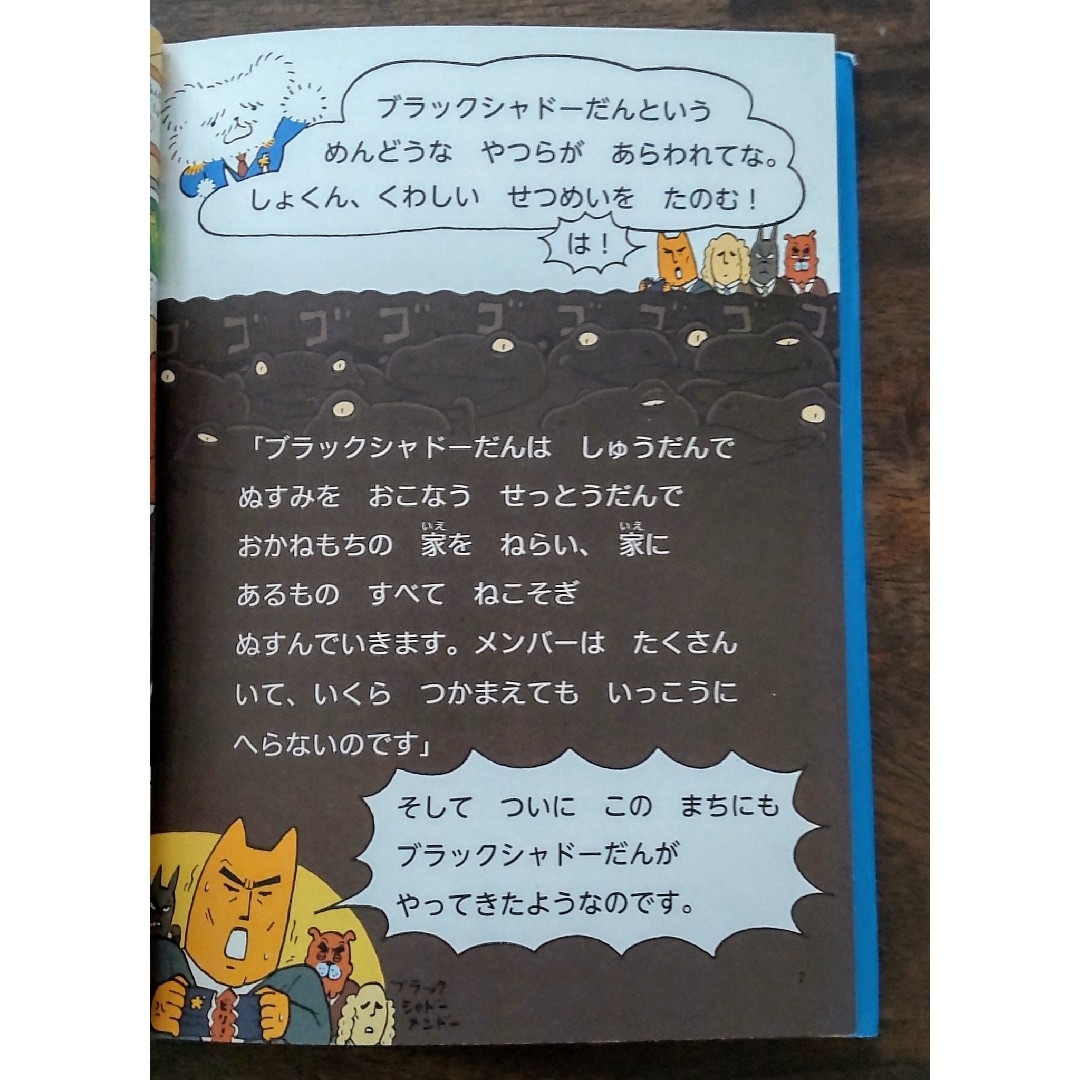 ブラックシャドーだんという
めんどうな　やつらが　あらわれてな。
しょくん、くわしい　せつめいを　たのむ！
は！
ゴ ゴ ゴ ゴ ゴ ゴ ゴ ゴ ゴ
「ブラックシャドーだんは　しゅうだんで
ぬすみを　おこなう　せっとうだんで
いえ　いえ
おかねもちの　家を　ねらい、　家に
あるもの　すべて　ねこそぎ
ぬすんでいきます。メンバーは　たくさん
いて、いくら　つかまえても　いっこうに
へらないのです」
そして　ついに　この　まちにも
ブラックシャドーだんが
やってきたようなのです。
ブラック
シャドー
メンドー
7